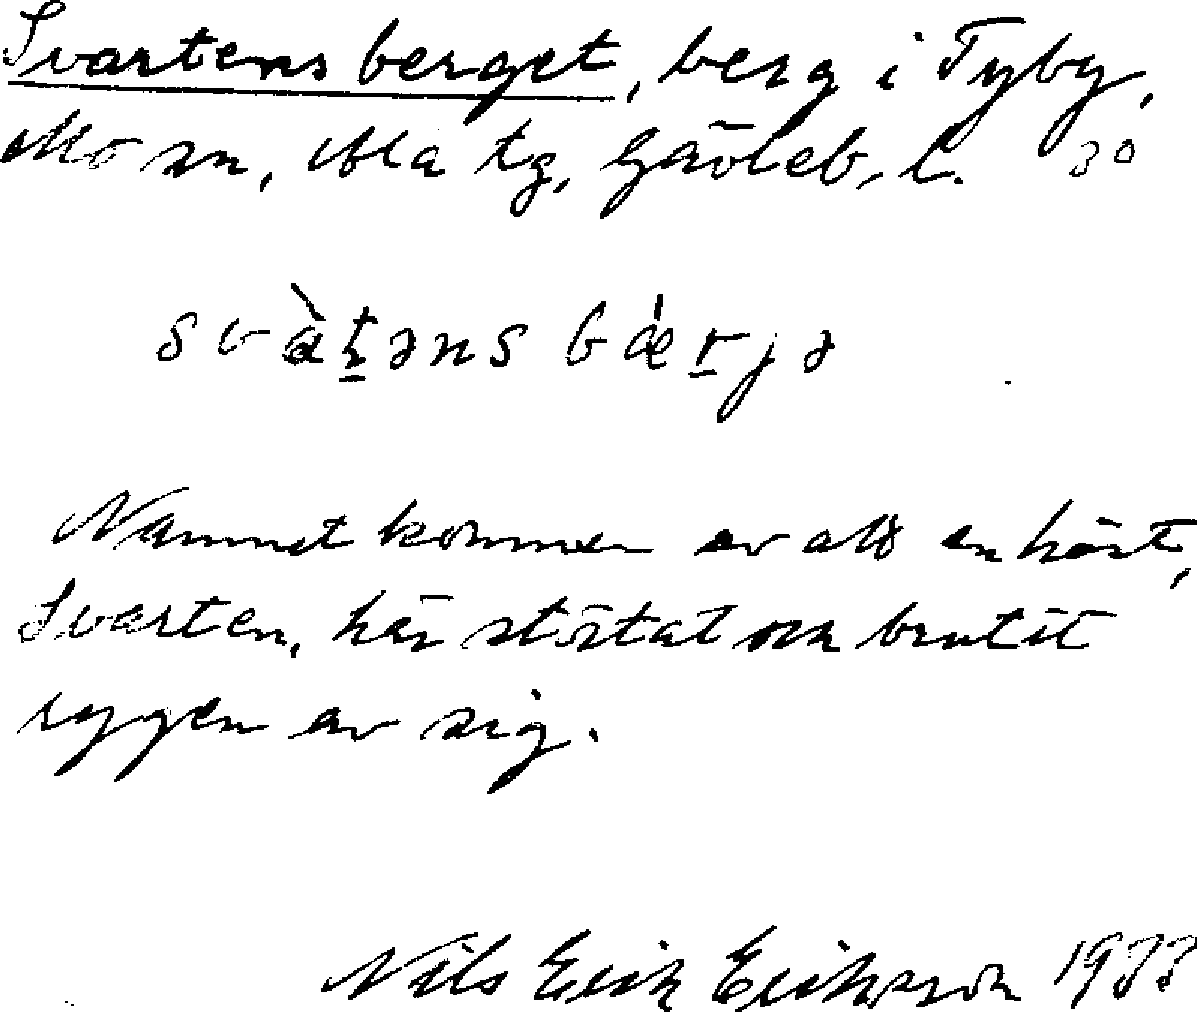 Svartens berget, berg i Tyby,
Mo sn, Ala tg, Gävleb. l. 30
svàt̠əns bǽr̠jə
Namnet kommer av att en häst,
Svarten, här störtat och brutit
ryggen av sig.
Nils Erik Eriksson 1933